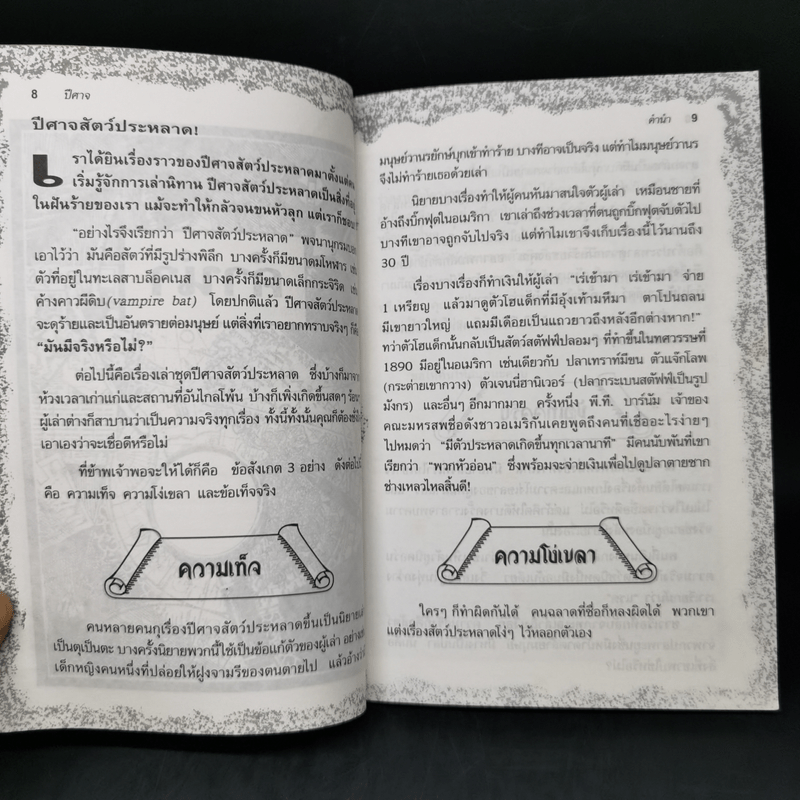 8 ปีศาจ
ปีศาจสัตว์ประหลาด!
เราได้ยินเรื่องราวของปีศาจสัตว์ประหลาดมาตั้งแต่
เริ่มรู้จักการเล่านิทาน ปีศาจสัตว์ประหลาดเป็นสิ่งที่
ในฝันร้ายของเรา แม้จะทำให้กลัวจนขนหัวลุก แต่เราก็
“อย่างไรจึงเรียกว่า ปีศาจสัตว์ประหลาด” พจนานุกรม
เอาไว้ว่า มันคือสัตว์ที่มีรูปร่างพิลึก บางครั้งก็มีขนาดมโหฬาร เช่น
ตัวที่อยู่ในทะเลสาบล็อคเนส บางครั้งก็มีขนาดเล็กกระจิริด เช่น
ค้างคาวผีดิบ(vampire bat) โดยปกติแล้ว ปีศาจสัตว์ประหลาด
จะดุร้ายและเป็นอันตรายต่อมนุษย์ แต่สิ่งที่เราอยากทราบจริงๆ ก็คือ
“มันมีจริงหรือไม่?”
ต่อไปนี้คือเรื่องเล่าชุดปีศาจสัตว์ประหลาด ซึ่งบ้างก็มาจาก
ห้วงเวลาเก่าแก่และสถานที่อันไกลโพ้น บ้างก็เพิ่งเกิดขึ้นสดๆ ร้อนๆ
ผู้เล่าต่างก็สาบานว่าเป็นความจริงทุกเรื่อง ทั้งนี้ทั้งนั้นคุณก็ต้อง
เอาเองว่าจะเชื่อดีหรือไม่
ที่ข้าพเจ้าพอจะให้ได้ก็คือ ข้อสังเกต 3 อย่าง ดังต่อไปนี้
คือ ความเท็จ ความโง่เขลา และข้อเท็จจริง
ความเท็จ
คนหลายคนกุเรื่องปีศาจสัตว์ประหลาดขึ้นเป็นนิยาย
เป็นตุเป็นตะ บางครั้งนิยายพวกนี้ใช้เป็นข้อแก้ตัวของผู้เล่า อย่าง
เด็กหญิงคนหนึ่งที่ปล่อยให้ฝูงจามรีของตนตายไป แล้วอ้างว่า
คำนำ 9
มนุษย์วานรยักษ์บุกเข้าทำร้าย บางทีอาจเป็นจริง แต่ทำไมมนุษย์วานร
จึงไม่ทำร้ายเธอด้วยเล่า
นิยายบางเรื่องทำให้ผู้คนหันมาสนใจตัวผู้เล่า เหมือนชายที่
อ้างถึงบิ๊กฟุตในอเมริกา เขาเล่าถึงช่วงเวลาที่ตนถูกบิ๊กฟุตจับตัวไป
บางทีเขาอาจถูกจับไปจริง แต่ทำไมเขาจึงเก็บเรื่องนี้ไว้นานถึง
30 ปี
เรื่องบางเรื่องก็ทำเงินให้ผู้เล่า “เร่เข้ามา เร่เข้ามา จ่าย
1 เหรียญ แล้วมาดูตัวโฮแด็กที่มีอุ้งเท้ามหึมา ตาโปนถลน
มีเขายาวใหญ่ แถมมีเดือยเป็นแถวยาวถึงหลังอีกต่างหาก!”
ทว่าตัวโฮแด็กนั้นกลับเป็นสัตว์สตัฟฟ์ปลอมๆ ที่ทำขึ้นในทศวรรษที่
1890 มีอยู่ในอเมริกา เช่นเดียวกับ ปลาเทราท์มีขน ตัวแจ๊กโลพ
(กระต่ายเขากวาง) ตัวเจนนี่ฮานิเวอร์ (ปลากระเบนสตัฟฟ์เป็นรูป
มังกร) และอื่นๆ อีกมากมาย ครั้งหนึ่ง พี.ที. บาร์นัม เจ้าของ
คณะมหรสพชื่อดังชาวอเมริกันเคยพูดถึงคนที่เชื่ออะไรง่ายๆ
ไปหมดว่า “มีตัวประหลาดเกิดขึ้นทุกเวลานาที” มีคนนับพันที่เขา
เรียกว่า “พวกหัวอ่อน” ซึ่งพร้อมจะจ่ายเงินเพื่อไปดูปลาตายซาก
ช่างเหลวไหลสิ้นดี!
ความโง่เขลา
ใครๆ ก็ทำผิดกันได้ คนฉลาดที่ซื่อก็หลงผิดได้ พวกเขา
แต่งเรื่องสัตว์ประหลาดโง่ๆ ไว้หลอกตัวเอง